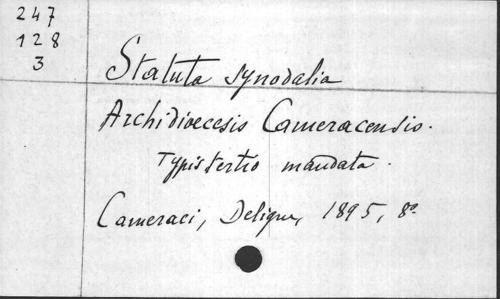 247
128
3
Statuta synodalia
Archidioecesis Cameracensis.
Typis tertio mandata.
Cameraci, Deligne, 1895, 8º